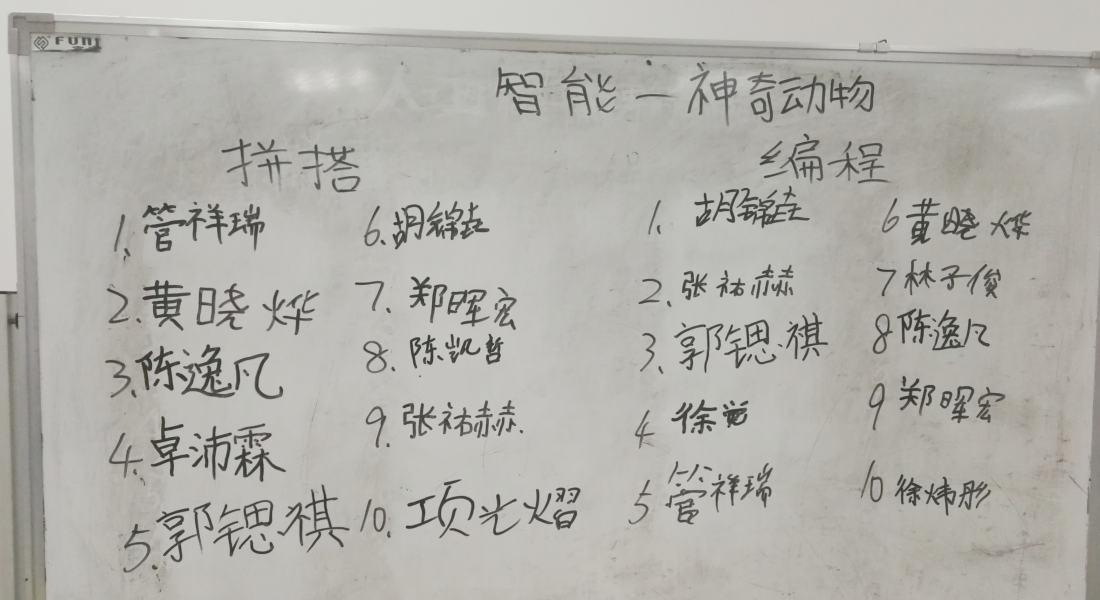 FUNI
智能—神奇动物
拼搭
编程
1.管祥瑞
2.黄晓烨
3.陈逸凡
4.卓沛霖
5.郭锶祺
6.胡锦垚
7.郑晖宏
8.陈凯哲
9.张祐赫.
10.项光熠
1.胡锦垚
2.张祐赫
3.郭锶祺
4徐觉
5管祥瑞
6黄晓烨
7林子俊
8陈逸凡
9郑晖宏
10徐炜彤